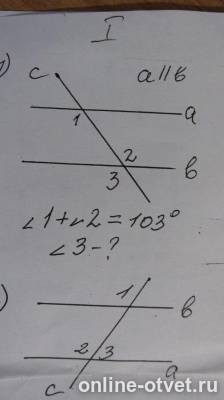 I
)
c
a || b
1
a
2
3
b
∠1+∠2=103°
∠3-?
)
1
b
2
3
a
c
online-otvet.ru